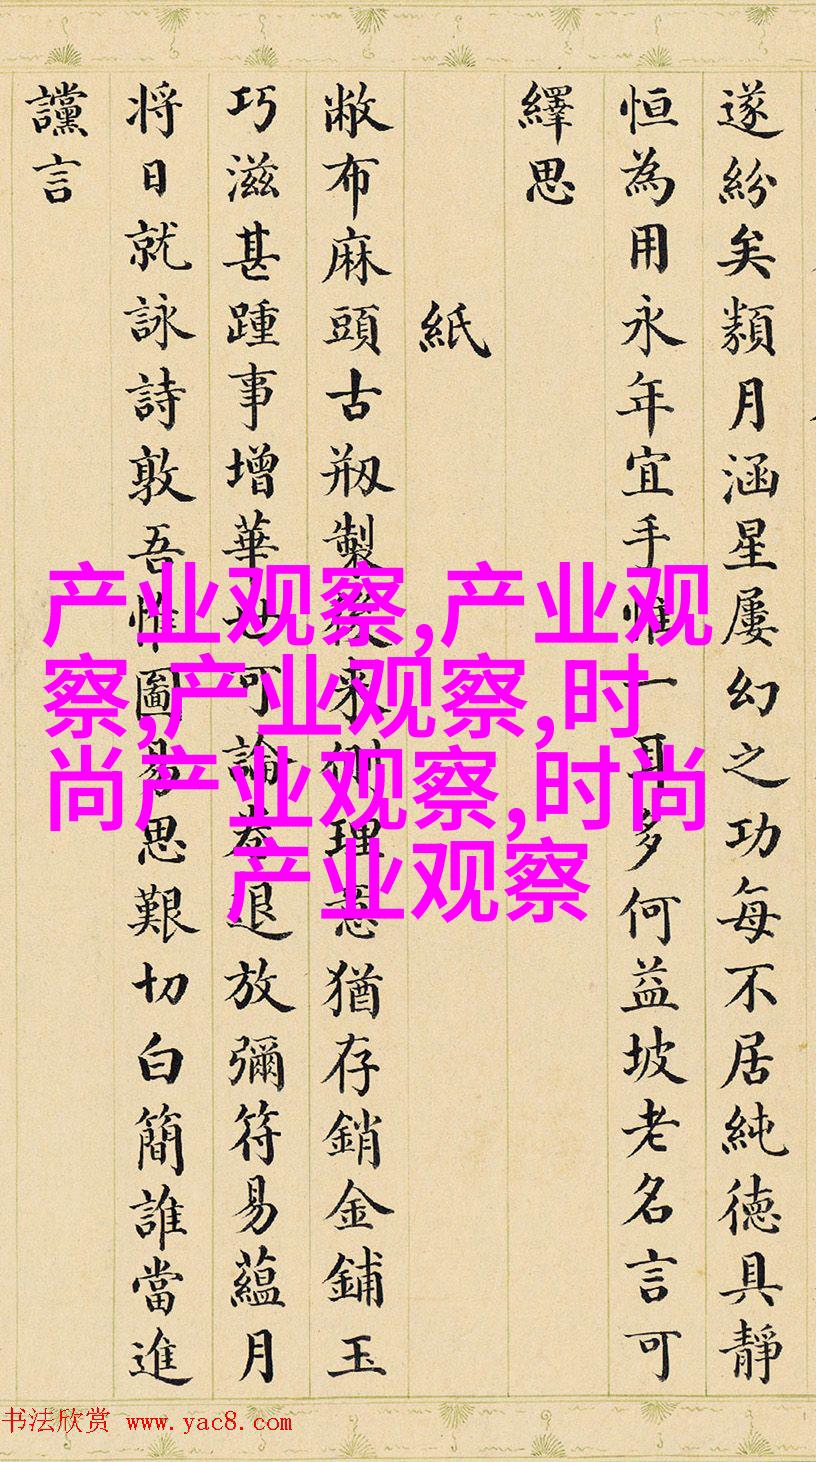 遂紛矣類月涵星屢幻之功每不居純德具靜
恒為用永年宜手惟一耳多何益坡老名言可
繹思
紙
敝布麻頭古剏製後來側理意猶存銷金鋪玉
巧滋甚踵事增華也可論卷退放彌符易蘊月
將日就詠詩敦吾惟圖易思艱切白簡誰當進
讜言
产业观察,产业观
察,产业观察,时
尚产业观察,时尚
产业观察
书法欣赏 www.yac8.com